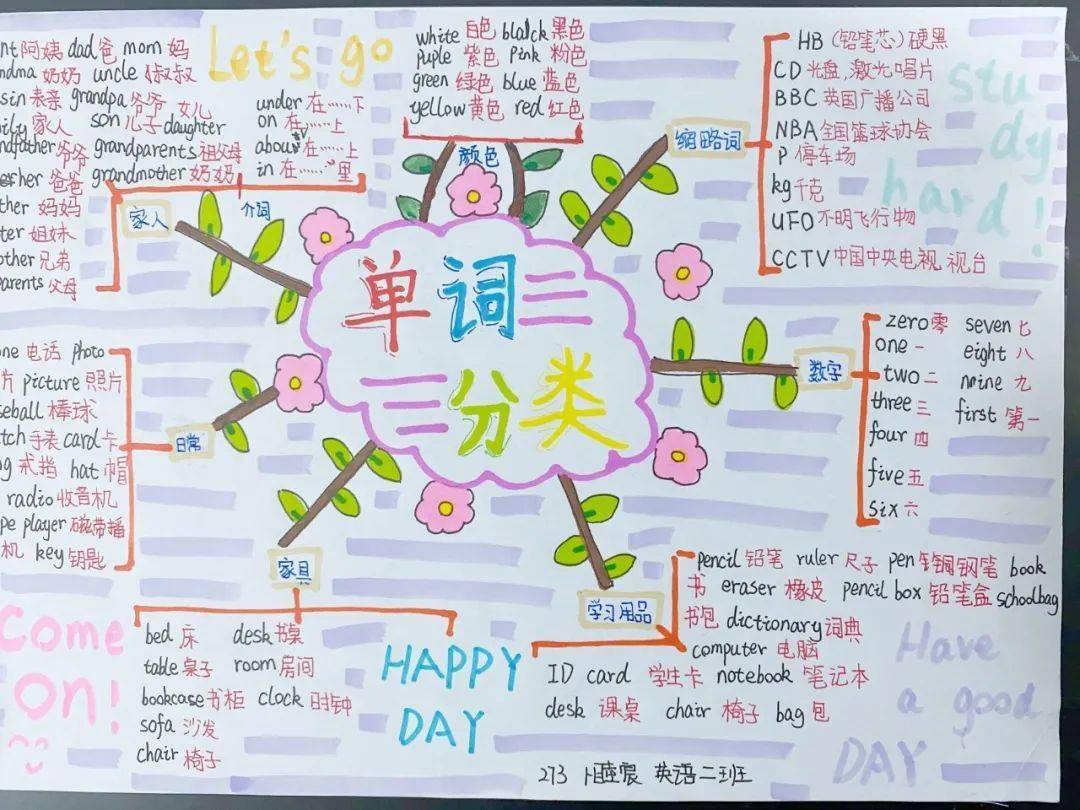 Let's go
阿姨 dad 爸 mom 妈
奶奶 uncle 叔叔
表亲 grandpa 爷爷 女儿
家人 son 儿子 daughter
爷爷 grandparents 祖父母
爸爸 grandmother 奶奶
妈妈
姐妹
兄弟
parents 父母
家人
under 在……下
on 在……上
about 在……上
in 在……里
介词
white 白色 black 黑色
puple 紫色 pink 粉色
green 绿色 blue 蓝色
yellow 黄色 red 红色
颜色
缩略词
HB (铅笔芯) 硬黑
CD 光盘,激光唱片
BBC 英国广播公司
NBA 全国篮球协会
P 停车场
kg 千克
UFO 不明飞行物
CCTV 中国中央电视 视台
study
hard!
单词
分类
数字
zero 零 seven 七
one 一 eight 八
two 二 nine 九
three 三 first 第一
four 四
five 五
six 六
日常
电话 photo
picture 照片
棒球
手表 card 卡
戒指 hat 帽
radio 收音机
player 磁带播
机 key 钥匙
家具
bed 床 desk 书桌
table 桌子 room 房间
bookcase 书柜 clock 时钟
sofa 沙发
chair 椅子
学习用品
pencil 铅笔 ruler 尺子 pen 钢笔 book
书 eraser 橡皮 pencil box 铅笔盒 schoolbag
书包 dictionary 词典
computer 电脑
ID card 学生卡 notebook 笔记本
desk 课桌 chair 椅子 bag 包
Come
on!
HAPPY
DAY
Have
a good
DAY
273 英语二班